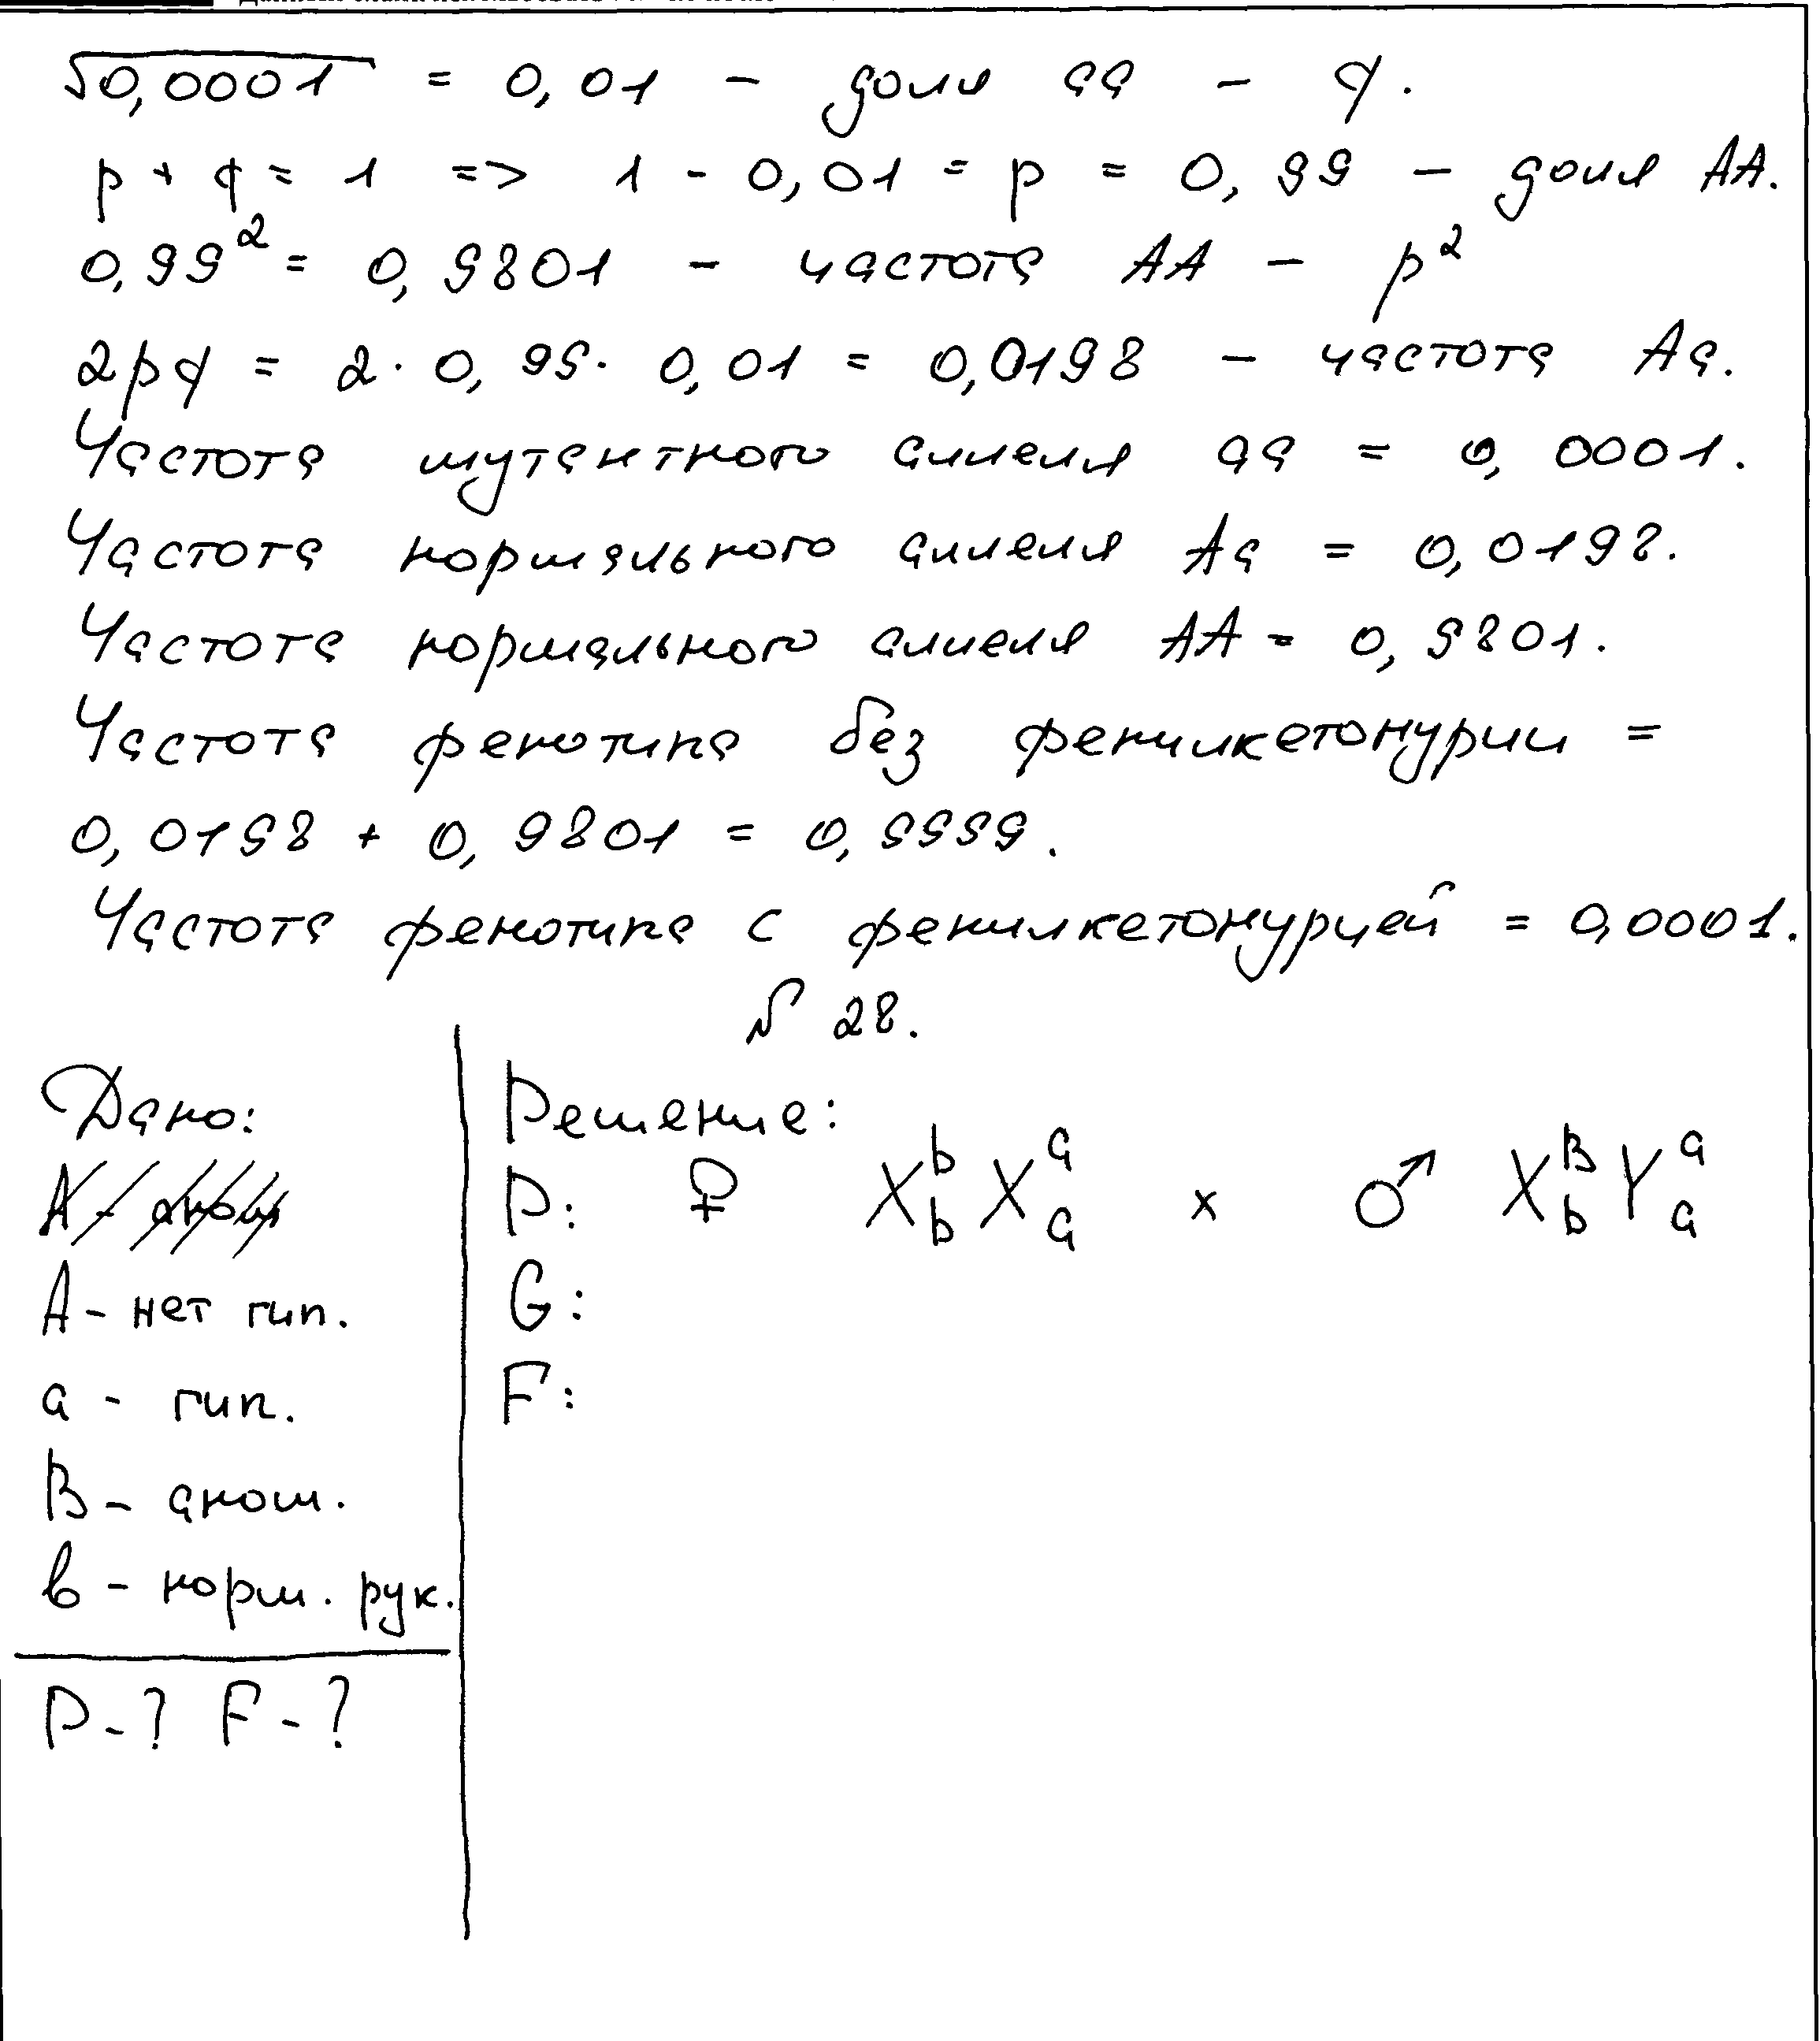 √0,0001 = 0,01 – доля aa – q.
p + q = 1 => 1 - 0,01 = p = 0,99 – доля AA.
0,99² = 0,9801 – частота AA – p²
2pq = 2 · 0,99 · 0,01 = 0,0198 – частота Aa.
Частота мутантного аллеля aa = 0,0001.
Частота нормального аллеля Aa = 0,0198.
Частота нормального аллеля AA = 0,9801.
Частота фенотипа без фенилкетонурии =
0,0198 + 0,9801 = 0,9999.
Частота фенотипа с фенилкетонурией = 0,0001.
№ 28.
Дано:
A – нет гип.
a – гип.
B – аном.
b – норм. рук.
P - ? F - ?
Решение:
P: ♀ X^b_b X^a_a x ♂ X^B_b Y^a_a
G:
F: